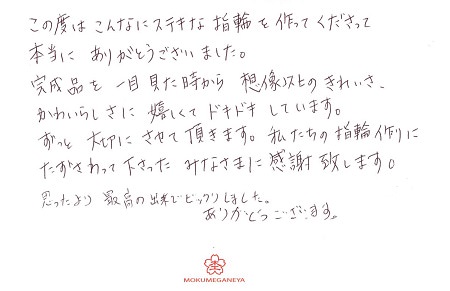 この度は こんなにステキな 指輪を 作ってくださって
本当に ありがとうございました。
完成品を 一目見た時から 想像以上のきれいさ、
かわいらしさに 嬉しくて ドキドキ しています。
ずっと 大切に させて 頂きます。私たちの 指輪作りに
たずさわって 下さった みなさまに 感謝 致します。
思ったより 最高の出来でビックリしました。
ありがとうございます。
MOKUMEGANEYA